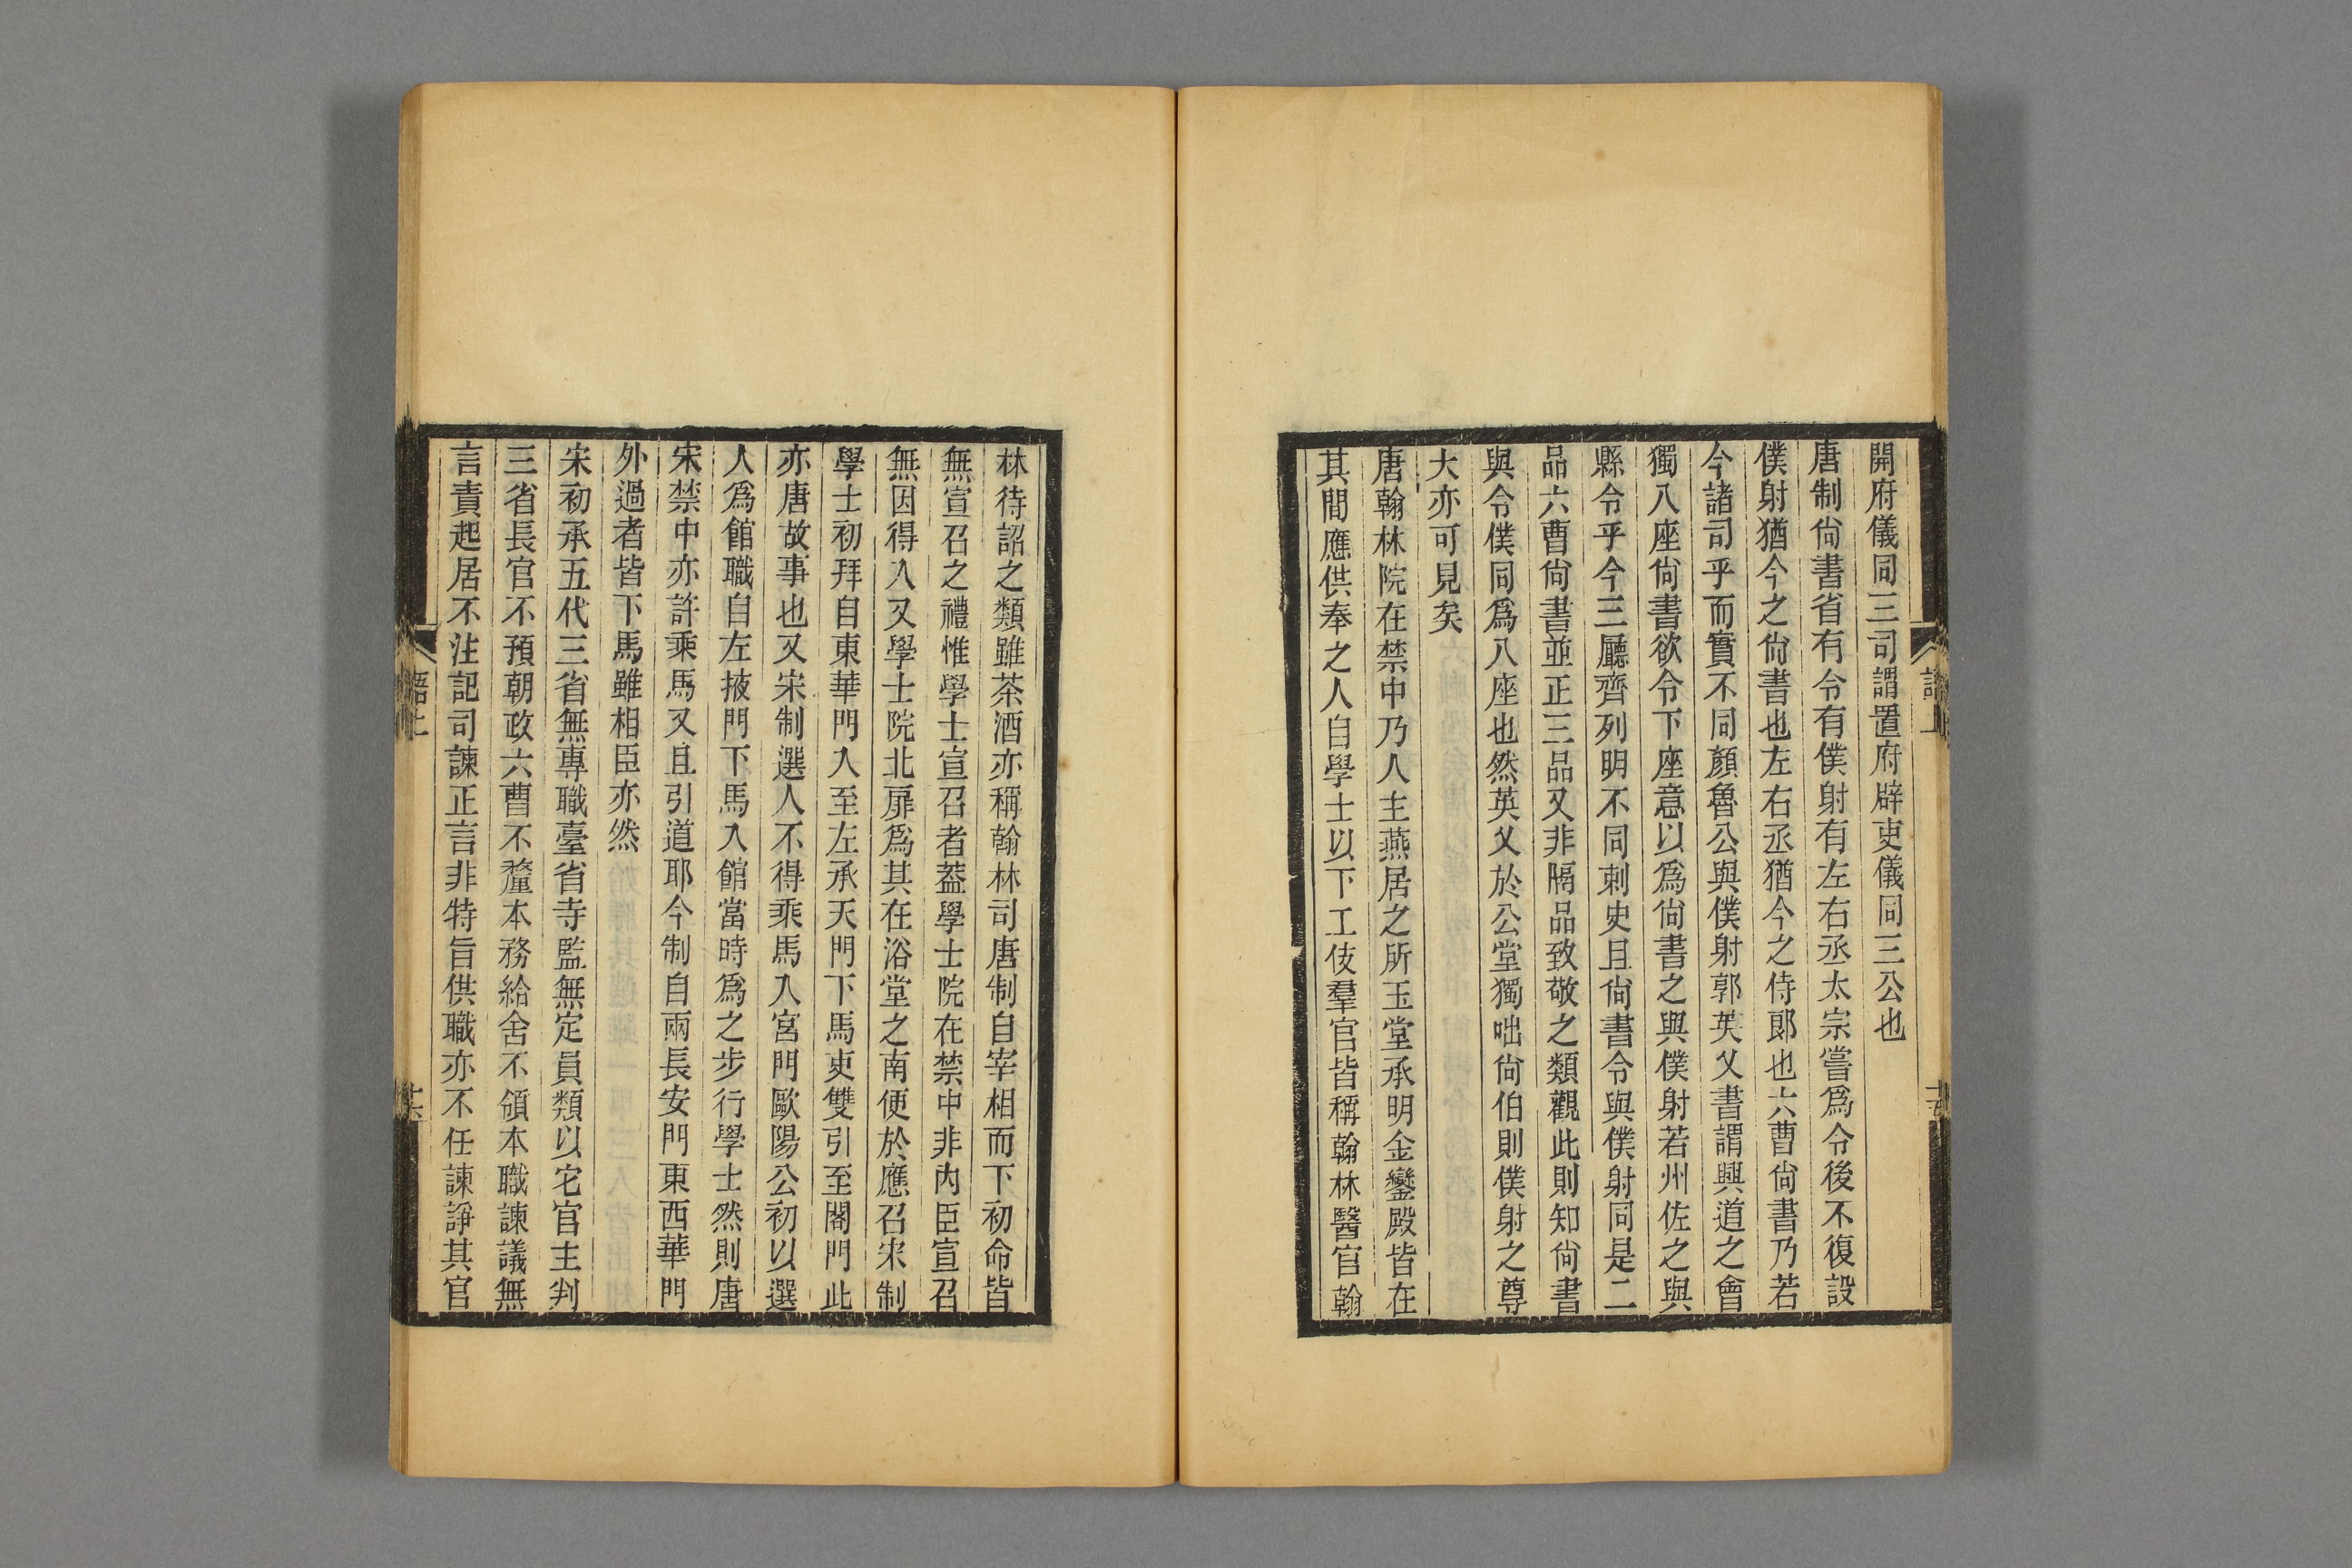 開府儀同三司謂置府辟吏儀同三公也
唐制尙書省有令有僕射有左右丞太宗嘗爲令後不復設
僕射猶今之尙書也左右丞猶今之侍郞也六曹尙書乃若
今諸司乎而實不同顏魯公與僕射郭英乂書謂興道之會
獨八座尙書欲令下座意以爲尙書之與僕射若州佐之與
縣令乎今三廳齊列明不同刺史且尙書令與僕射同是二
品六曹尙書並正三品又非隔品致敬之類觀此則知尙書
與令僕同爲八座也然英乂於公堂獨咄尙伯則僕射之尊
大亦可見矣
唐翰林院在禁中乃人主燕居之所玉堂承明金鑾殿皆在
其間應供奉之人自學士以下工伎羣官皆稱翰林醫官翰
林待詔之類雖茶酒亦稱翰林司唐制自宰相而下初命皆
無宣召之禮惟學士宣召者葢學士院在禁中非內臣宣召
無因得入又學士院北扉爲其在浴堂之南便於應召宋制
學士初拜自東華門入至左承天門下馬吏雙引至閤門此
亦唐故事也又宋制選人不得乘馬入宮門歐陽公初以選
人爲館職自左掖門下馬入館當時爲之步行學士然則唐
宋禁中亦許乘馬又且引道耶今制自兩長安門東西華門
外過者皆下馬雖相臣亦然
宋初承五代三省無專職臺省寺監無定員類以它官主判
三省長官不預朝政六曹不釐本務給舍不領本職諫議無
言責起居不注記司諫正言非特旨供職亦不任諫諍其官
語上
十六